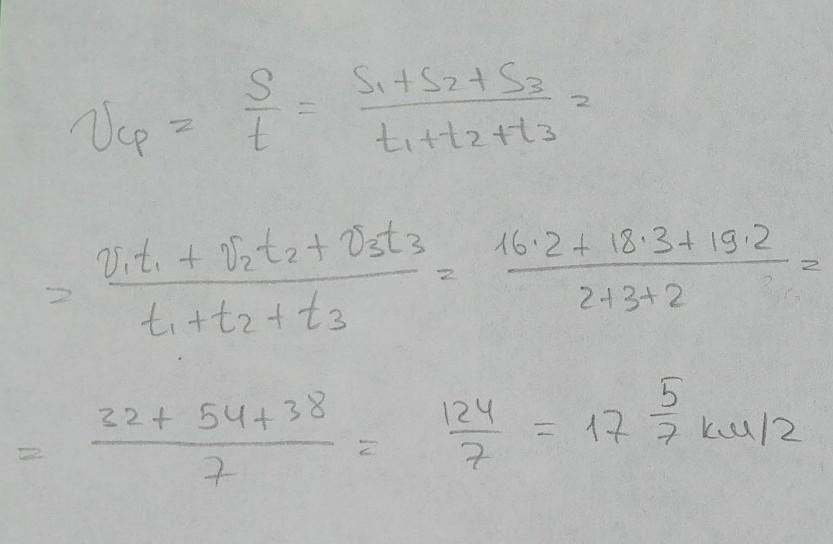 Vср = S/t = S₁+S₂+S₃/t₁+t₂+t₃ =
= V₁t₁ + V₂t₂ + V₃t₃/t₁+t₂+t₃ = 16·2 + 18·3 + 19·2/2+3+2 =
= 32 + 54 + 38/7 = 124/7 = 17 5/7 км/г